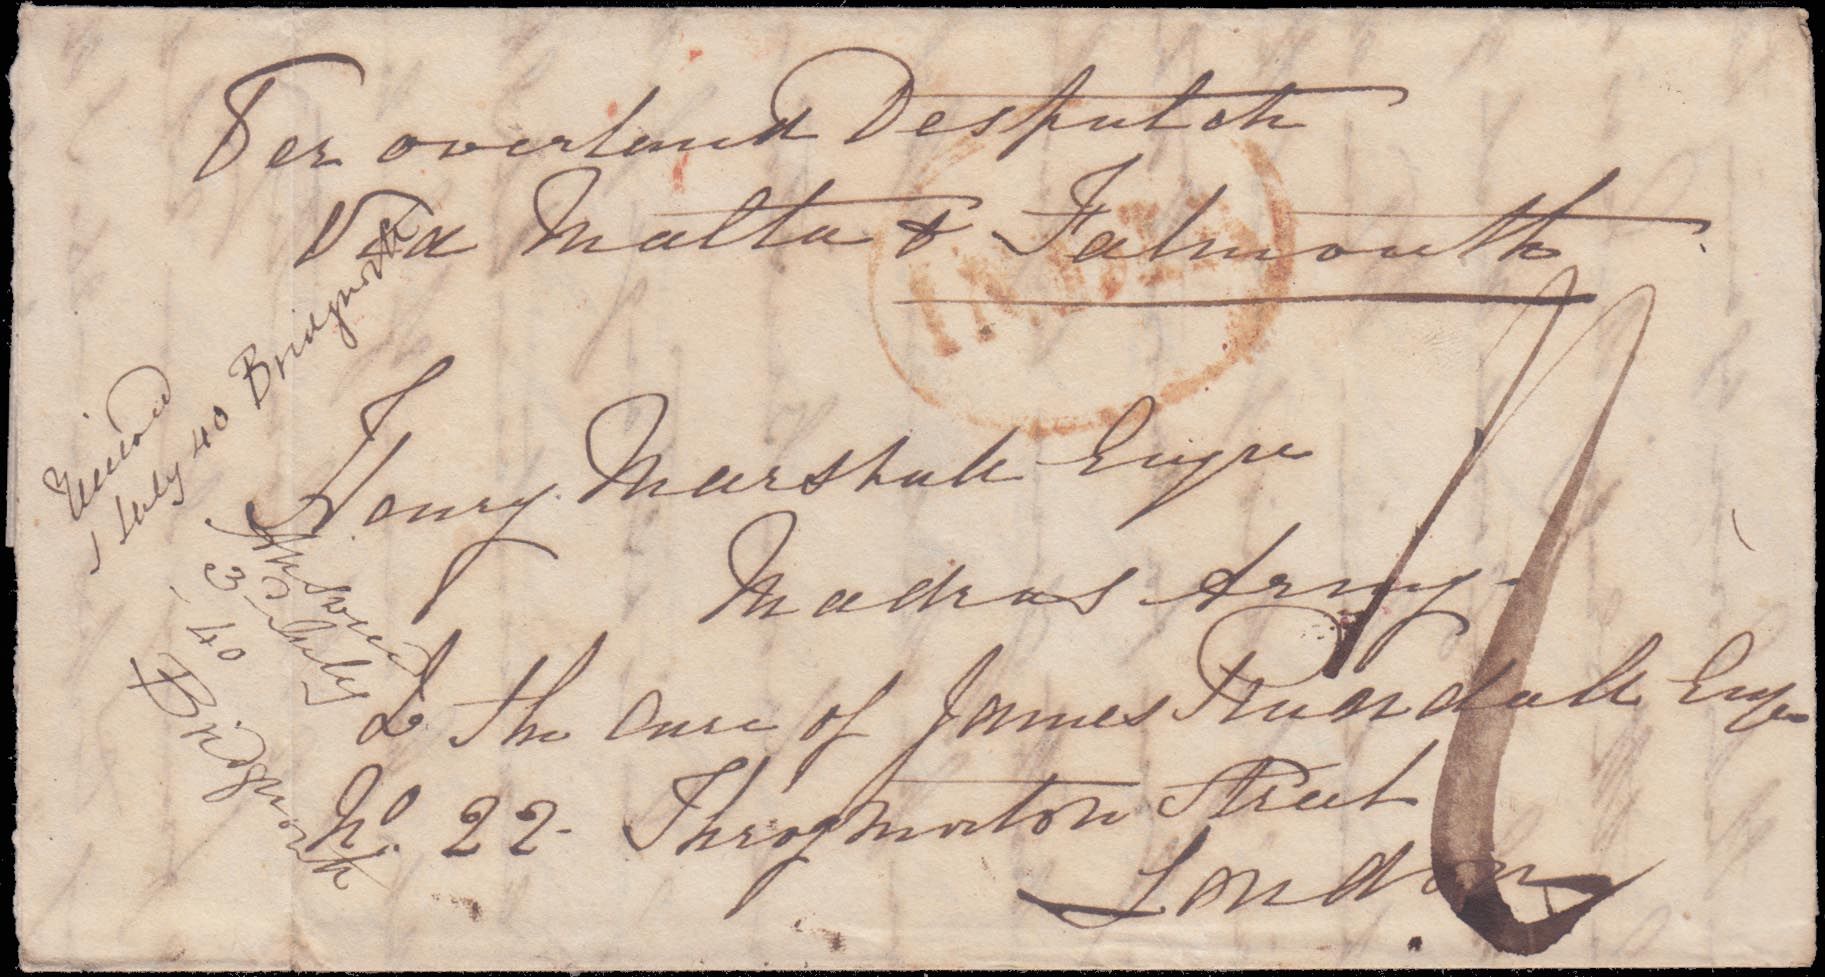 Per overland Despatch
Via Malta & Falmouth
INDIA
Henry Marshall Esqre
Madras Army
To the care of James Rundall Esqr
No. 22 Throgmorton Street
London
1 July 40 Bridgnorth
Answered
3 July
40
Bridgnorth